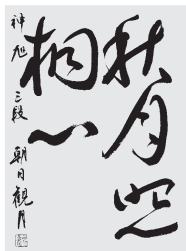 秋月照
禅心
神旭 三段 朝日観月